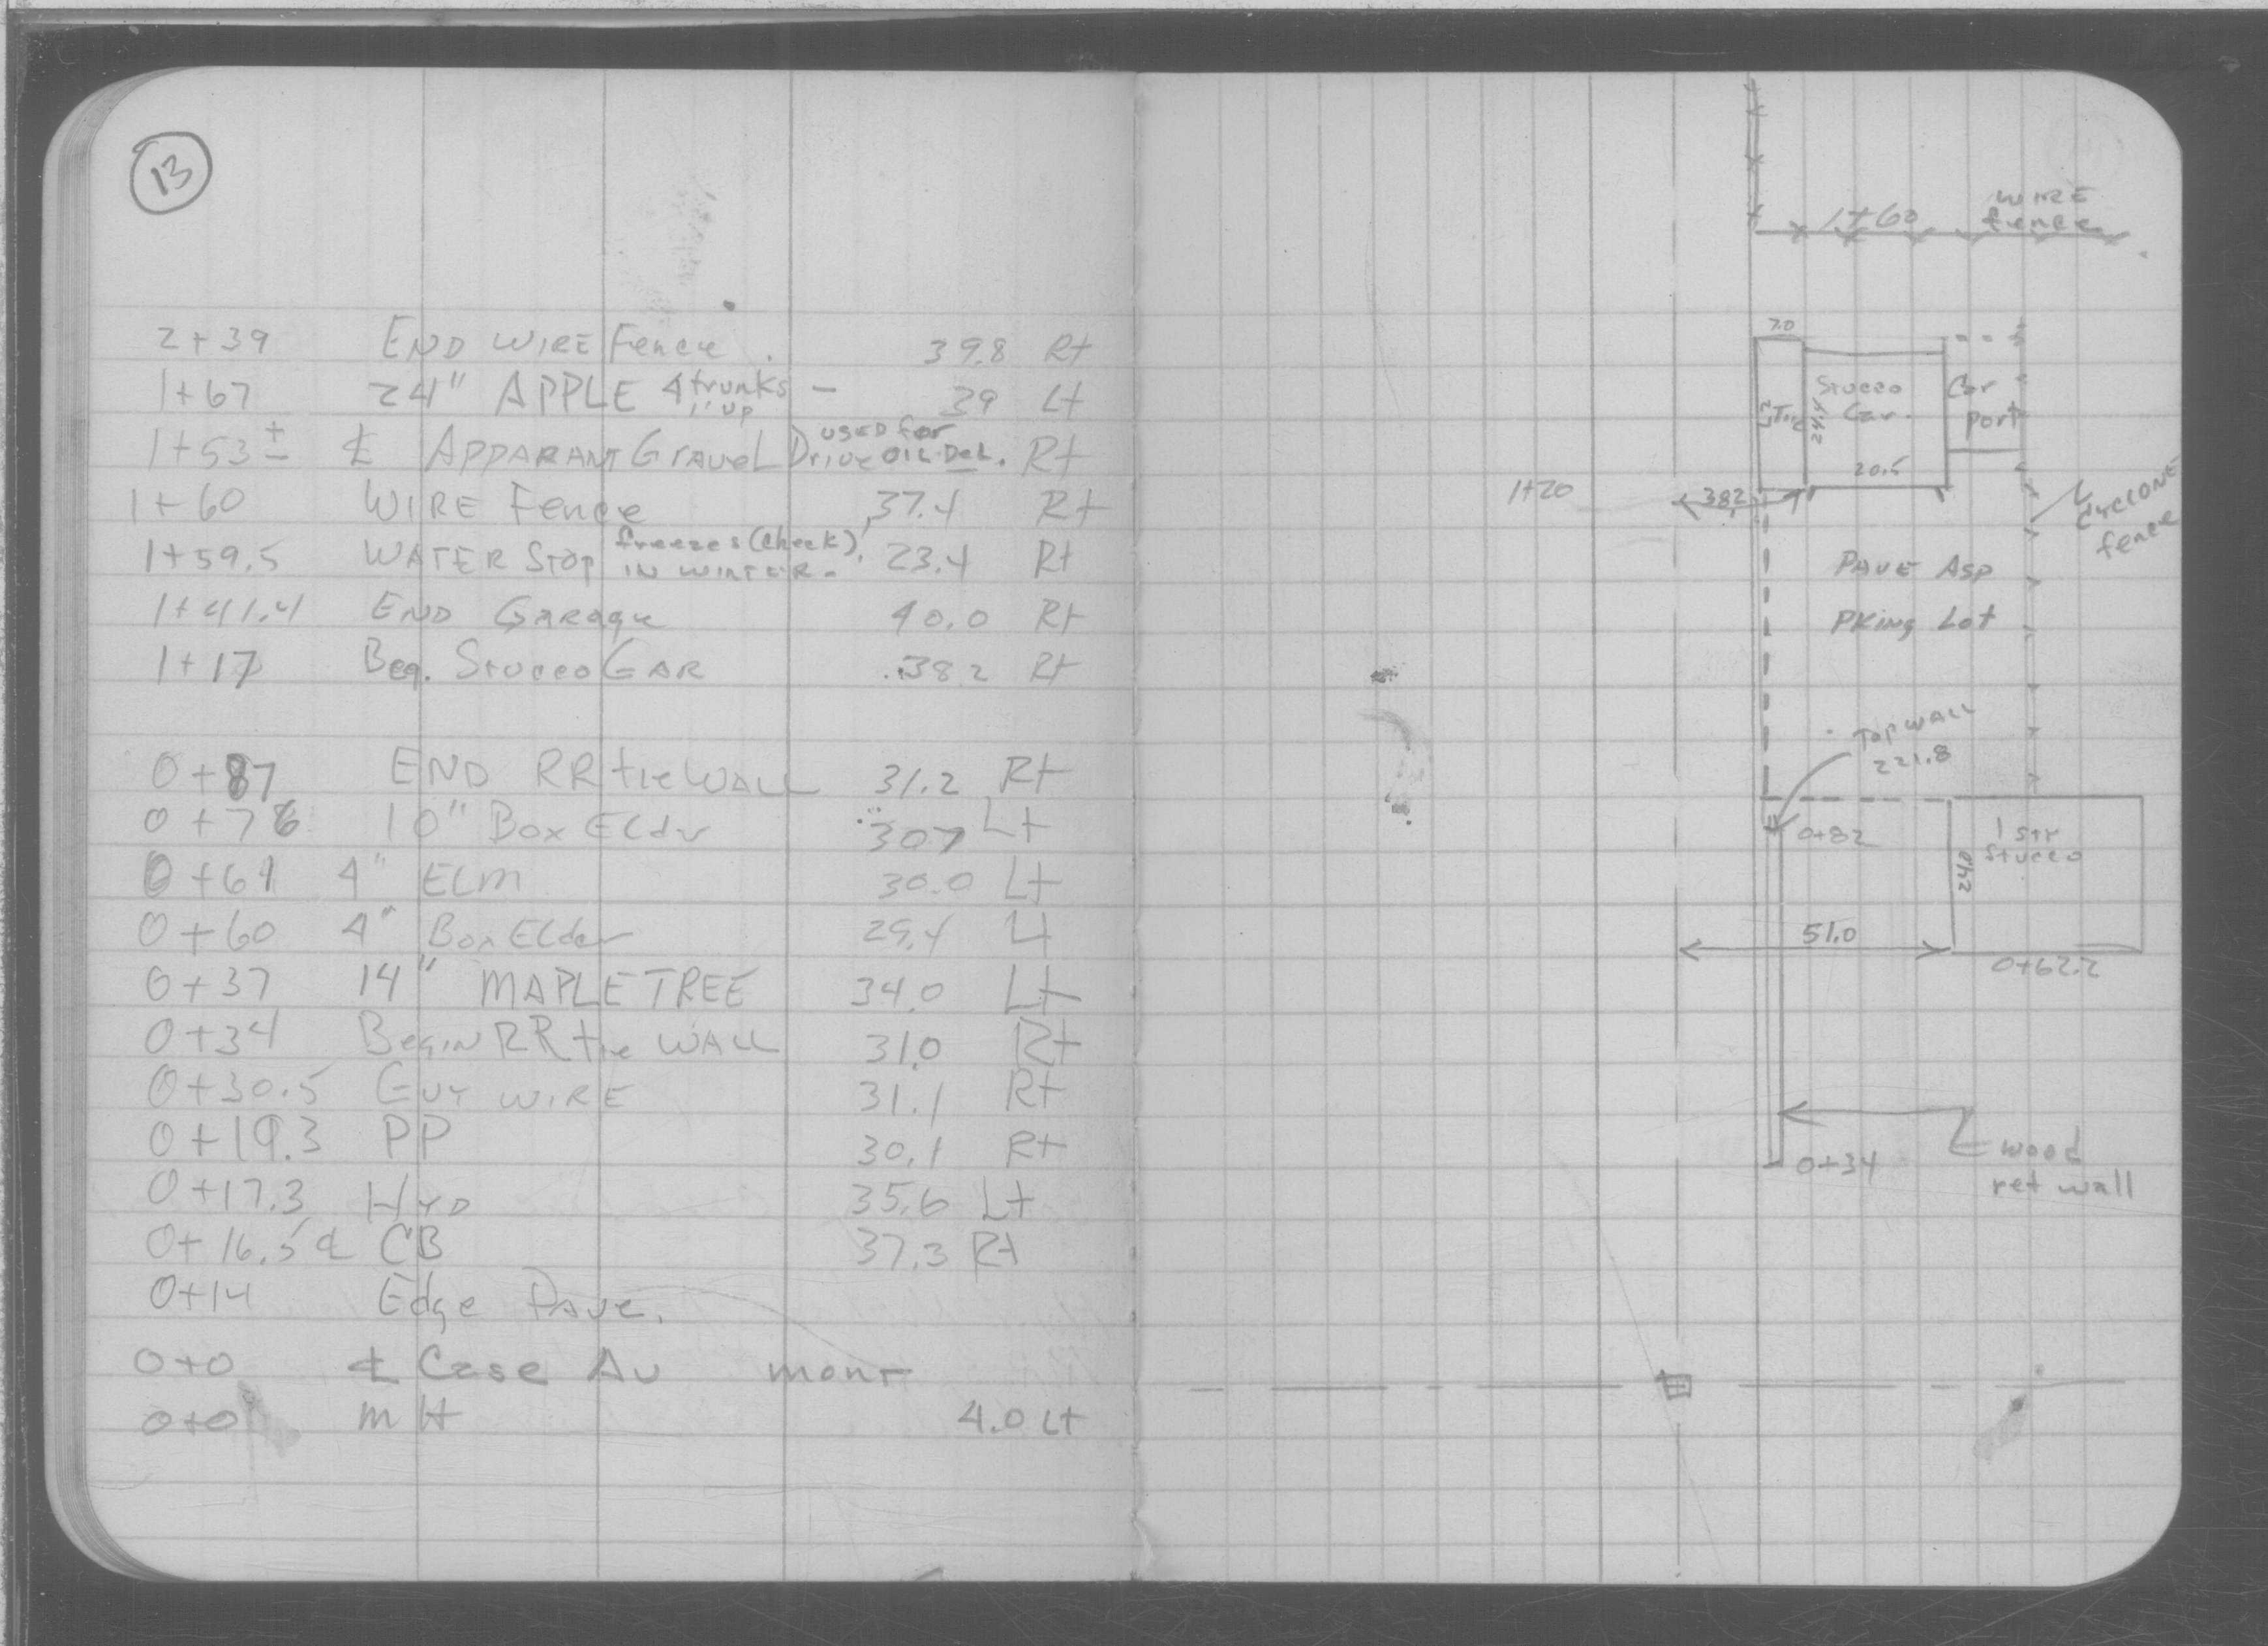 13
2+39 END WIRE Fence. 39.8 Rt
1+67 24" APPLE 4 trunks 1' up - 39 Lt
1+53± ℄ APPARANT GRAVEL Drive USED for OIL Del. Rt
1+60 WIRE Fence 37.4 Rt
1+59.5 WATER Stop freezes (check) IN WINTER. 23.4 Rt
1+41.4 END Garage 40.0 Rt
1+17 Beg. Stucco GAR 38.2 Rt
0+87 END RR tie WALL 31.2 Rt
0+78 10" Box Elder 30.7 Lt
0+61 4" ELM 30.0 Lt
0+60 4" Box Elder 29.4 Lt
0+37 14" MAPLE TREE 34.0 Lt
0+34 Begin RR tie WALL 31.0 Rt
0+30.5 GUY WIRE 31.1 Rt
0+19.3 PP 30.1 Rt
0+17.3 HYD 35.6 Lt
0+16.5 ℄ CB 37.3 Rt
0+14 Edge Pave.
0+0 ℄ Case Av mont
0+0 MH 4.0 Lt
WIRE
fence
1+60
7.0
Stucco
Gar.
24.4
20.5
Car
port
1+20
38.2
Cyclone
fence
PAVE ASP
PKing Lot
Top WALL
221.8
0+82
1 str
Stucco
24.0
51.0
0+62.2
wood
ret wall
0+34